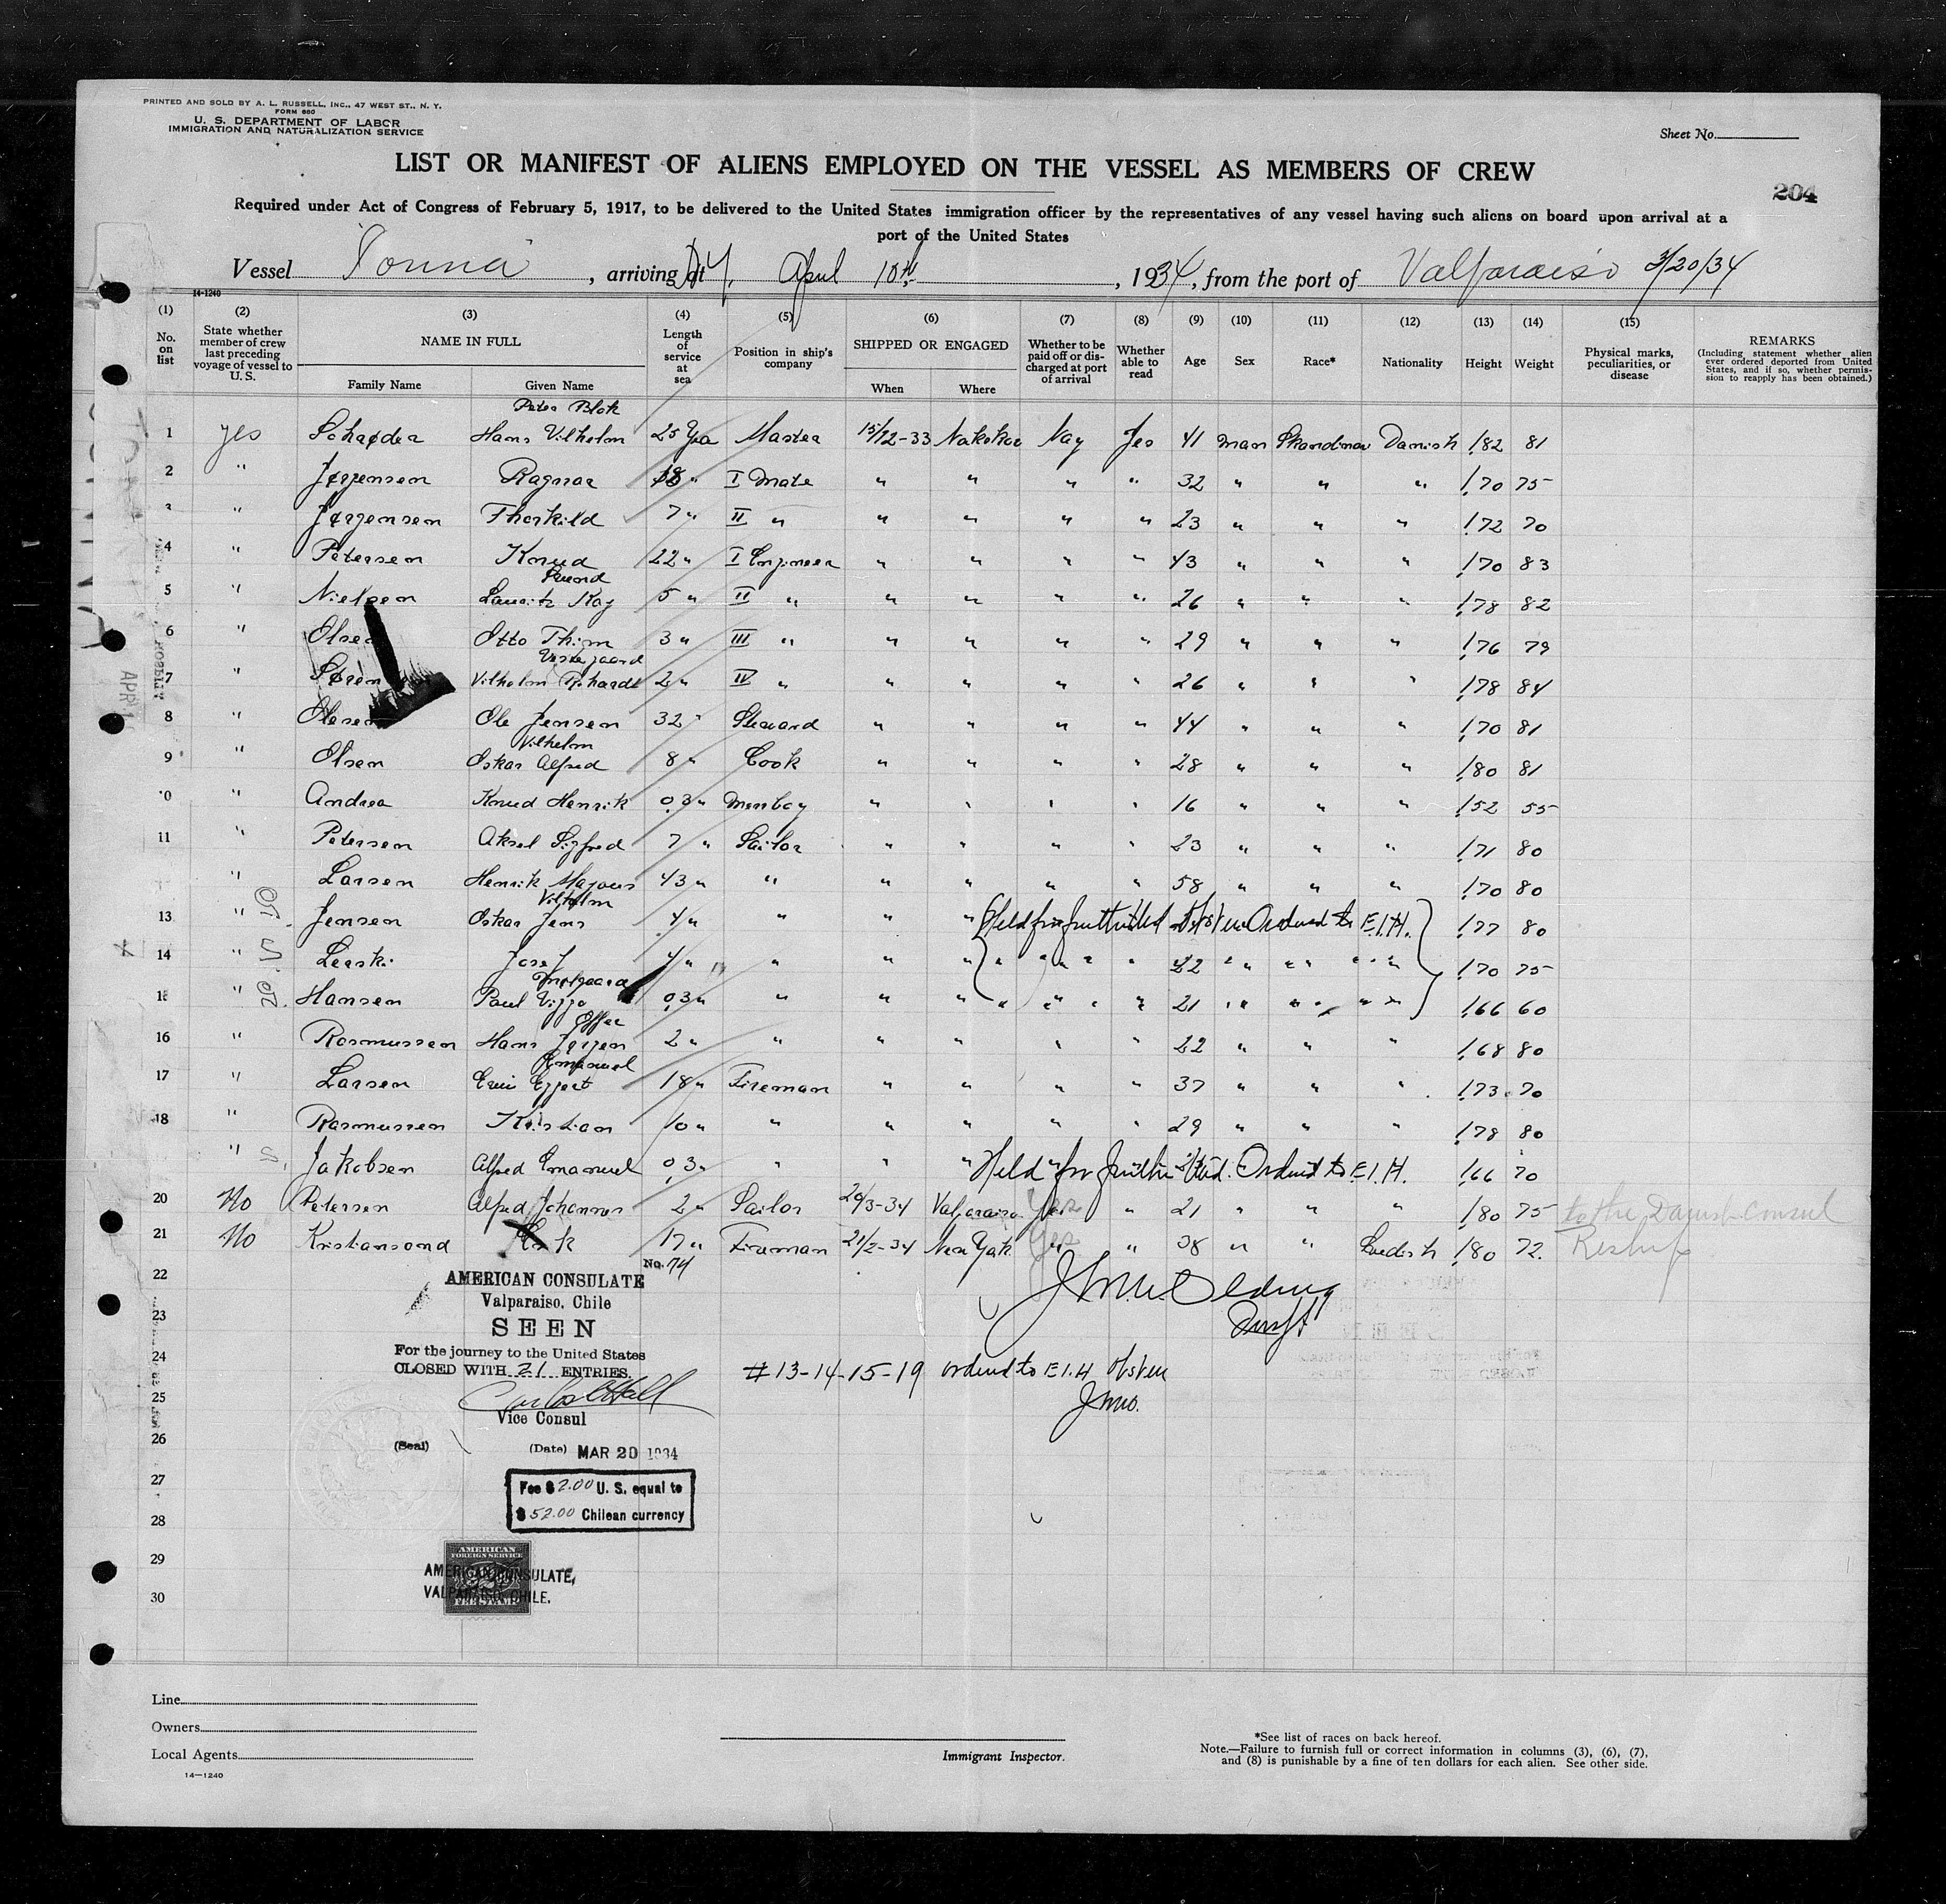 PRINTED AND SOLD BY A. L. RUSSELL, INC., 47 WEST ST., N. Y.
FORM 680
U. S. DEPARTMENT OF LABOR
IMMIGRATION AND NATURALIZATION SERVICE
Sheet No.
LIST OR MANIFEST OF ALIENS EMPLOYED ON THE VESSEL AS MEMBERS OF CREW
204
Required under Act of Congress of February 5, 1917, to be delivered to the United States immigration officer by the representatives of any vessel having such aliens on board upon arrival at a
port of the United States
Vessel , arriving at N.Y. April 10th , 1934, from the port of Valparaiso 3/20/34
14-1240
(1) (2) (3) (4) (5) (6) (7) (8) (9) (10) (11) (12) (13) (14) (15)
No. on list State whether member of crew last preceding voyage of vessel to U. S. NAME IN FULL Family Name Given Name Length of service at sea Position in ship's company SHIPPED OR ENGAGED When Where Whether to be paid off or discharged at port of arrival Whether able to read Age Sex Race* Nationality Height Weight Physical marks, peculiarities, or disease REMARKS (Including statement whether alien ever ordered deported from United States, and if so, whether permission to reapply has been obtained.)
Peter Blok
1 yes Schrøder Hans Vilhelm 25 Yea Master 15/12-33 Nakskov Nay Yes 41 man Skandinav Danish 1.82 81
2 " Jørgensen Ragnar 18 " I Mate " " " " 32 " " " 1.70 75
3 " Jørgensen Thorkild 7 " II " " " " " 23 " " " 1.72 70
4 " Petersen Knud 22 " I Engineer " " " " 43 " " " 1.70 83
5 " Nielsen Lauritz Kay 5 " II " " " " " 26 " " " 1.78 82
6 " Olsen Otto 3 " III " " " " " 29 " " " 1.76 79
Vestergaard
7 " Vilhelm Rihardt 2 " IV " " " " " 26 " " " 1.78 84
8 " Olesen Ole Jensen 32 " Steward " " " " 44 " " " 1.70 81
Vilhelm
9 " Olsen Oskar Alfred 8 " Cook " " " " 28 " " " 1.80 81
10 " Andrea Knud Henrik 0,3 " Messboy " " " " 16 " " " 1.52 55
11 " Petersen Aksel Sigfred 7 " Sailor " " " " 23 " " " 1.71 80
" Larsen Henrik Magnus 43 " " " " " " 58 " " " 1.70 80
Vilhelm
13 " Jensen Oskar Jens 4 " " " " Held for further Ordered to E.I.H. 1.77 80
14 " Leeski Josef 4 " " " " " " 22 " " " 1.70 75
15 " Hansen Paul Viggo 0,3 " " " " " " 21 " " " 1.66 60
16 " Rasmussen Hans Jørgen 2 " " " " " " 22 " " " 1.68 80
Emanuel
17 " Larsen Eggert 18 " Fireman " " " " 37 " " " 1.73 70
18 " Rasmussen Kristian 10 " " " " " " 29 " " " 1.78 80
" Jakobsen Alfred Emanuel 0,3 " " " " Held for further Ordered to E.I.H. 1.66 70
20 No Petersen Alfred Johannes 2 " Sailor 20/3-34 Valparaiso Yes " 21 " " " 1.80 75 to the Danish Consul
21 No Kristiansond 17 " Fireman 21/2-34 New York Yes " 38 " " Swedish 1.80 72 Reship
22
No. 74
AMERICAN CONSULATE
Valparaiso, Chile
23
SEEN
24
For the journey to the United States
CLOSED WITH 21 ENTRIES.
# 13-14-15-19 ordered to E.I.H
25
Vice Consul
26
(Seal) (Date) MAR 20 1934
27
Fee $ 2.00 U. S. equal to
$ 52.00 Chilean currency
28
29
AMERICAN FOREIGN SERVICE
FEE STAMP
AMERICAN CONSULATE,
VALPARAISO, CHILE.
30
Line
Owners
Local Agents
14—1240
Immigrant Inspector.
*See list of races on back hereof.
Note.—Failure to furnish full or correct information in columns (3), (6), (7),
and (8) is punishable by a fine of ten dollars for each alien. See other side.